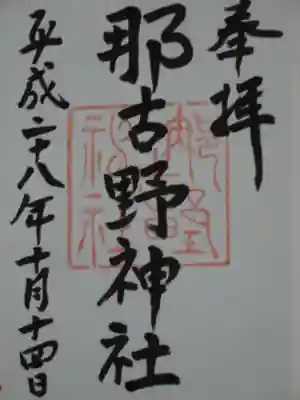 奉拝
那古野神社
平成二十八年十月十四日